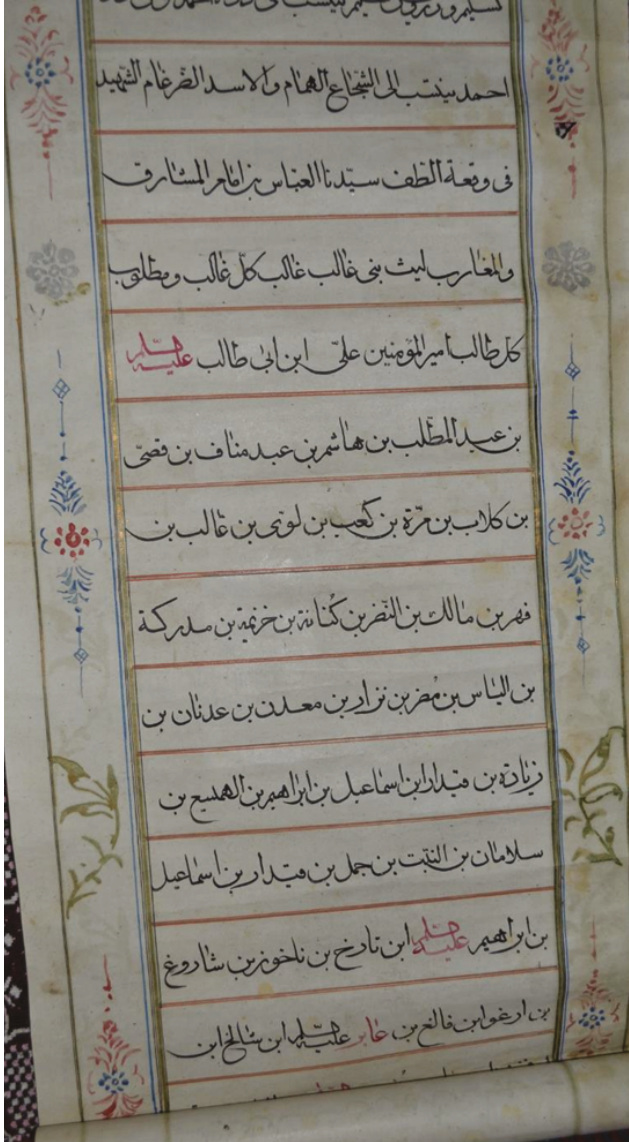 احمد ينتسب الى الشجاع الهمام والاسد الضرغام الشهيد
فى وقعة الطف سيدنا العباس بن امام المشارق
والمغارب ليث بنى غالب غالب كل غالب ومطلوب
كل طالب امير المؤمنين على ابن ابى طالب عليه السلام
بن عبد المطلب بن هاشم بن عبد مناف بن قصى
بن كلاب بن مرة بن كعب بن لوى بن غالب بن
فهر بن مالك بن النضر بن كنانة بن خزيمة بن مدركة
بن الياس بن مضر بن نزار بن معد بن عدنان بن
زيادة بن قيدار ابن اسماعيل بن ابراهيم بن الهميسع بن
سلامان بن النبت بن حمل بن قيدار بن اسماعيل
بن ابراهيم عليه السلام ابن تارخ بن ناخوز بن شاروغ
بن ارغو ابن فالغ بن عابر عليه السلام ابن شالخ ابن